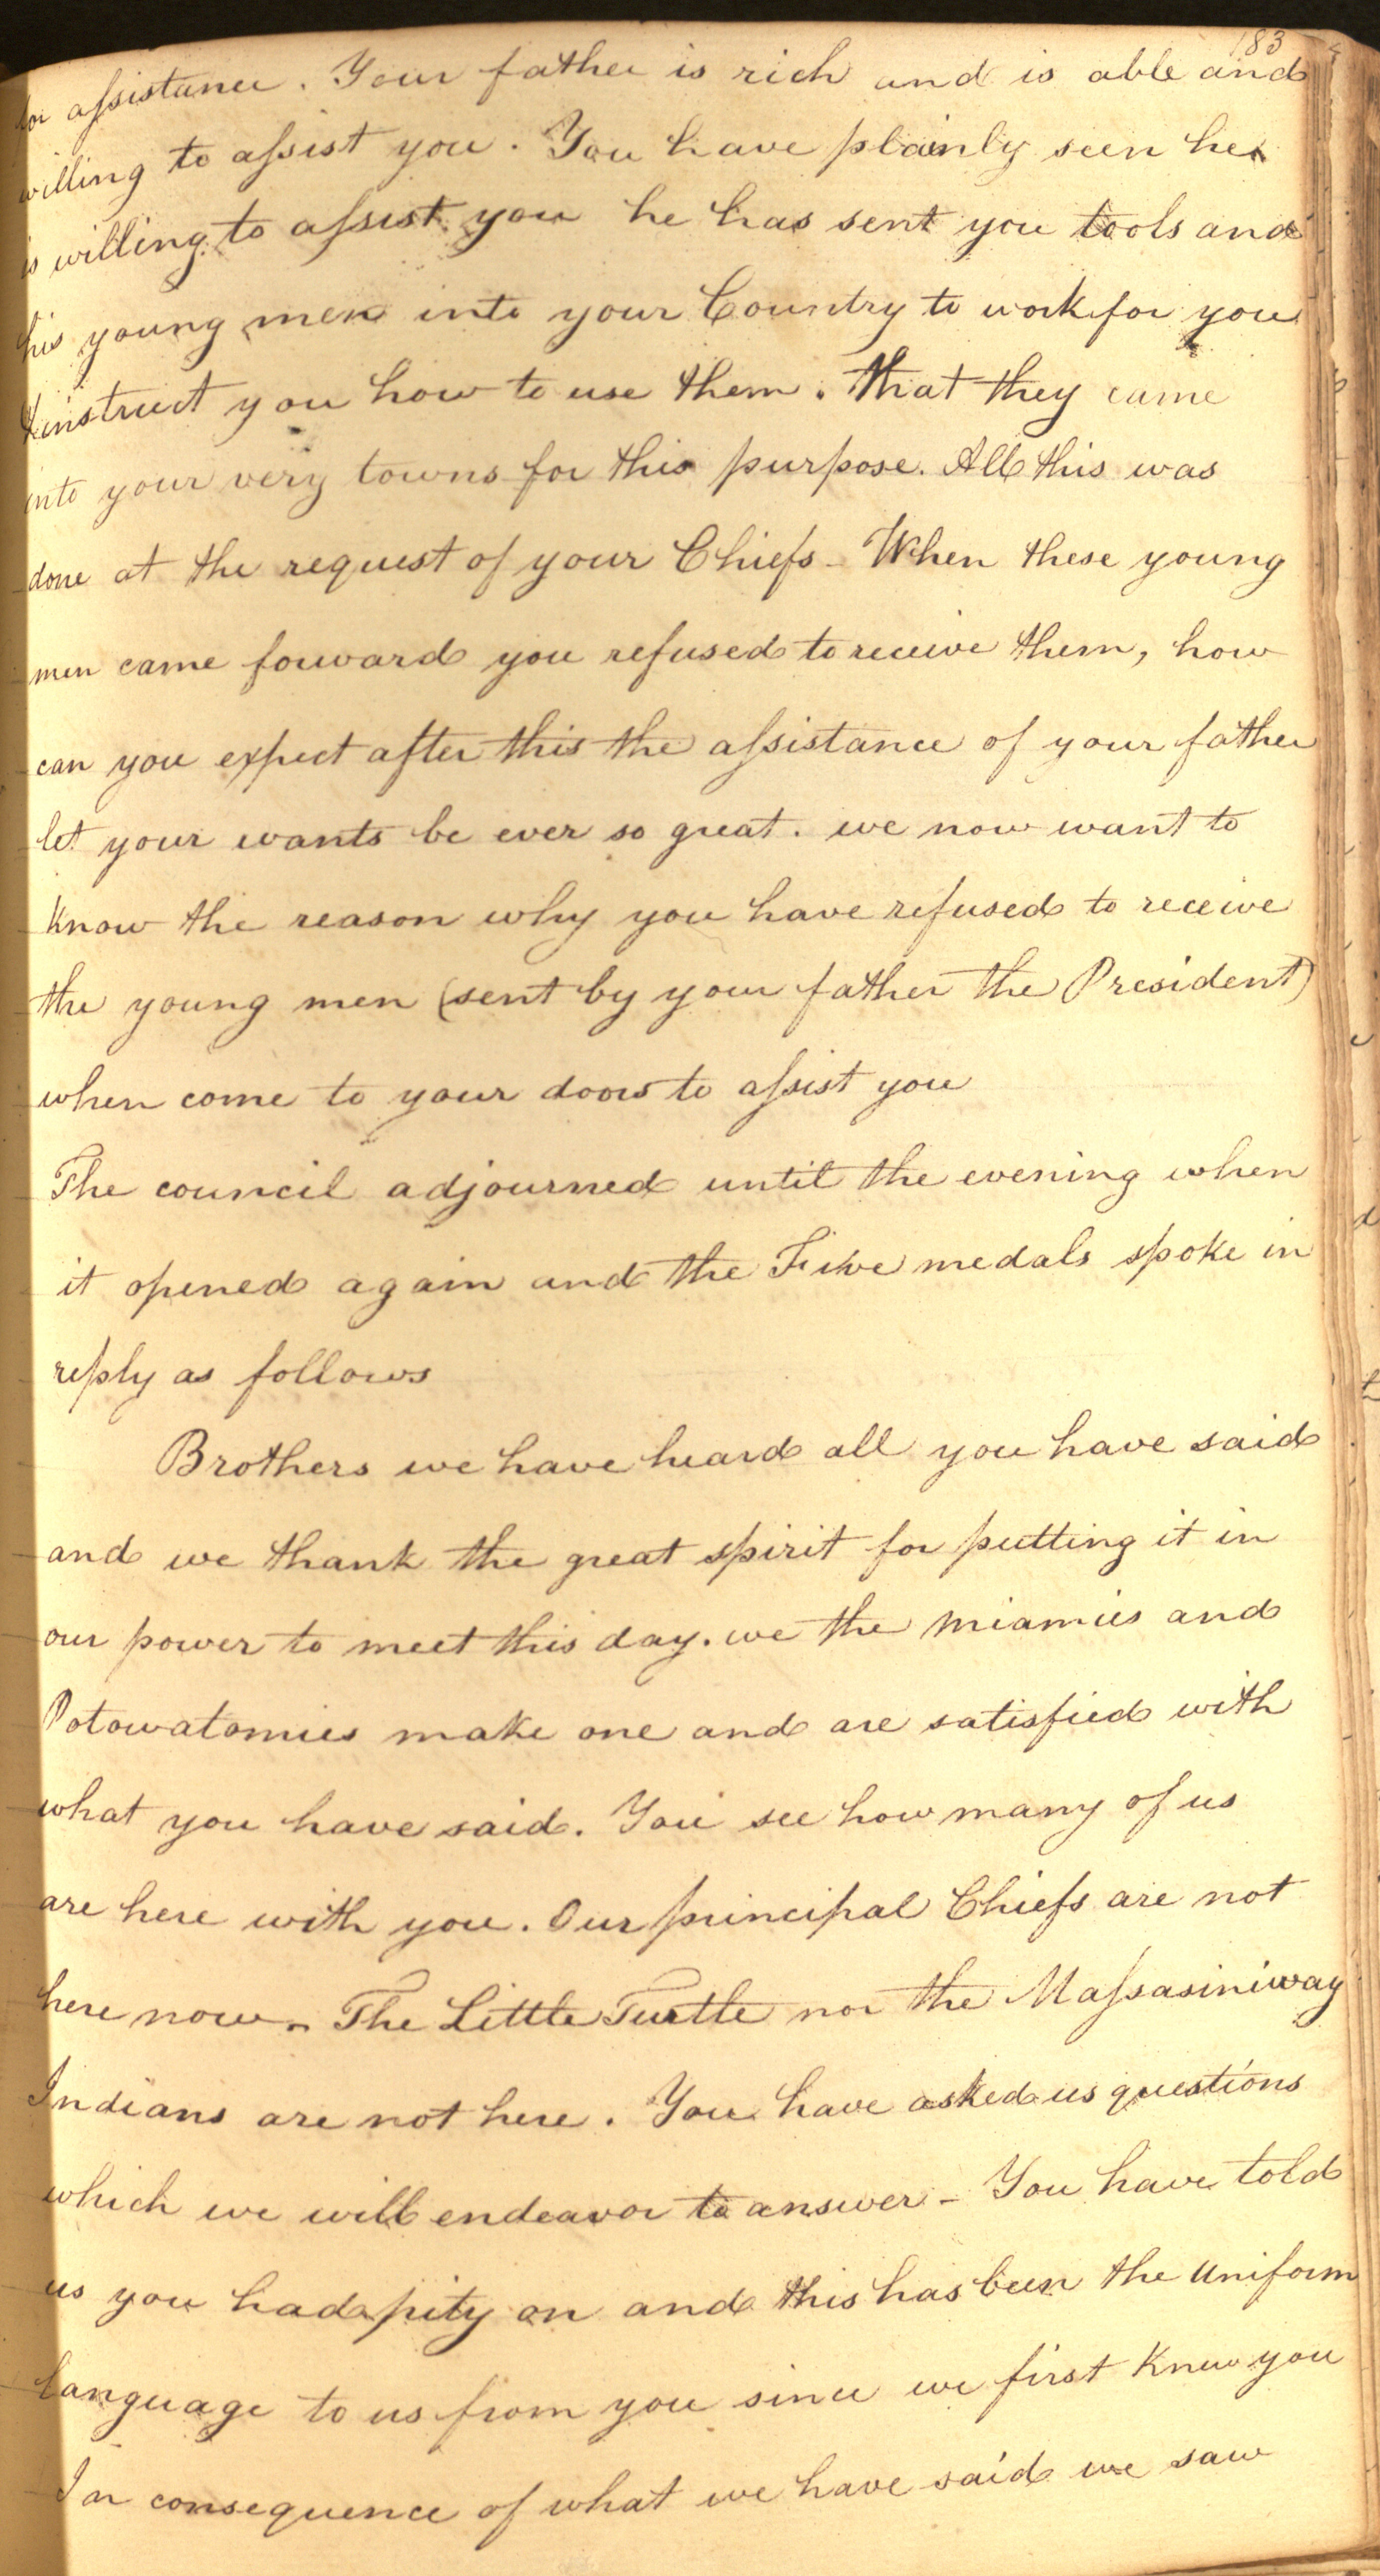 183
for assistance. Your father is rich and is able and
willing to assist you. You have plainly seen he
is willing to assist you he has sent you tools and
his young men into your Country to work for you
& instruct you how to use them. That they came
into your very towns for this purpose. All this was
done at the request of your Chiefs - When these young
men came forward you refused to receive them, how
can you expect after this the assistance of your father
let your wants be ever so great. we now want to
know the reason why you have refused to receive
the young men (sent by your father the President)
when come to your doors to assist you
The council adjourned until the evening when
it opened again and the Five medals spoke in
reply as follows
Brothers we have heard all you have said
and we thank the great spirit for putting it in
our power to meet this day. we the Miamies and
Potowatomies make one and are satisfied with
what you have said. You see how many of us
are here with you. Our principal Chiefs are not
here now - The Little Turtle nor the Massasiniway
Indians are not here. You have asked us questions
which we will endeavor to answer - You have told
us you had pity on and this has been the uniform
language to us from you since we first knew you
In consequence of what we have said we saw